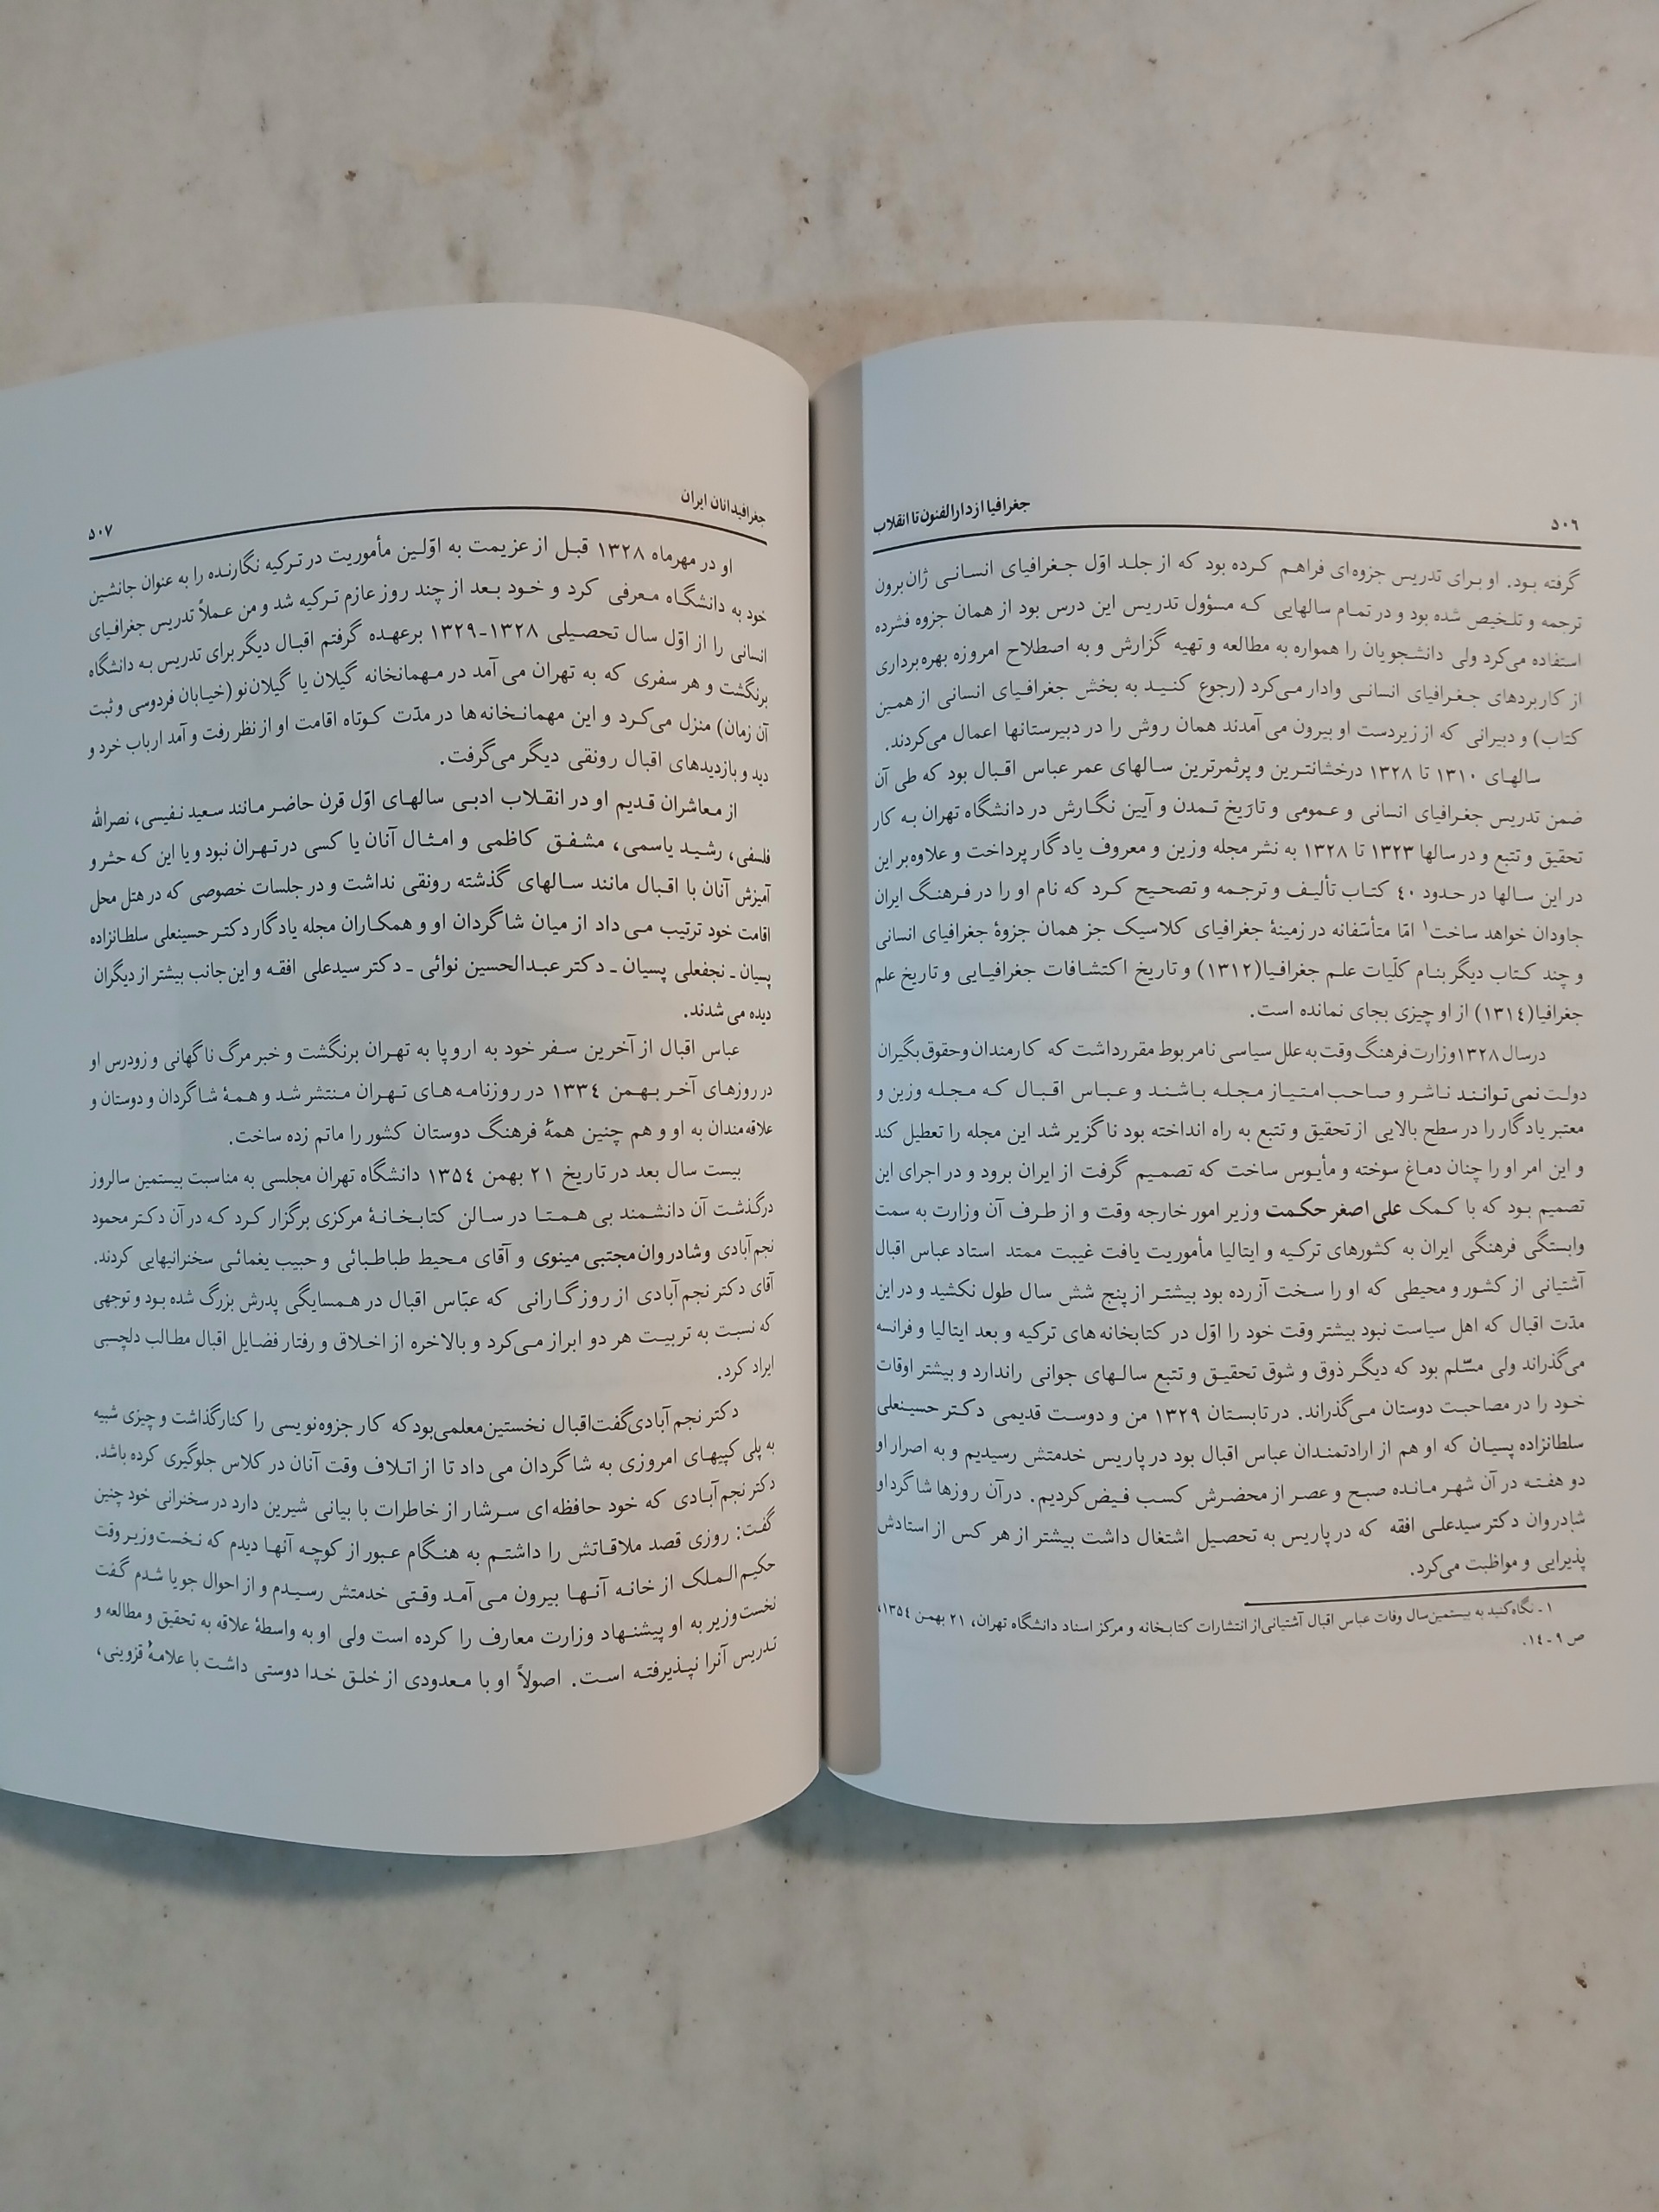 ۵۰۶
جغرافیا از دارالفنون تا انقلاب
گرفته بود. او برای تدریس جزوه‌ای فراهم کرده بود که از جلد اوّل جغرافیای انسانی ژان برون
ترجمه و تلخیص شده بود و در تمام سالهایی که مسؤول تدریس این درس بود از همان جزوه فشرده
استفاده می‌کرد ولی دانشجویان را همواره به مطالعه و تهیه گزارش و به اصطلاح امروزه بهره‌برداری
از کاربردهای جغرافیای انسانی وادار می‌کرد (رجوع کنید به بخش جغرافیای انسانی از همین
کتاب) و دبیرانی که از زیردست او بیرون می آمدند همان روش را در دبیرستانها اعمال می‌کردند.
سالهای ۱۳۱۰ تا ۱۳۲۸ درخشانترین و پرثمرترین سالهای عمر عباس اقبال بود که طی آن
ضمن تدریس جغرافیای انسانی و عمومی و تاریخ تمدن و آیین نگارش در دانشگاه تهران به کار
تحقیق و تتبع و در سالها ۱۳۲۳ تا ۱۳۲۸ به نشر مجله وزین و معروف یادگار پرداخت و علاوه بر این
در این سالها در حدود ۴۰ کتاب تألیف و ترجمه و تصحیح کرد که نام او را در فرهنگ ایران
جاودان خواهد ساخت۱ امّا متأسّفانه در زمینهٔ جغرافیای کلاسیک جز همان جزوهٔ جغرافیای انسانی
و چند کتاب دیگر بنام کلّیات علم جغرافیا(۱۳۱۲) و تاریخ اکتشافات جغرافیایی و تاریخ علم
جغرافیا(۱۳۱۴) از او چیزی بجای نمانده است.
درسال ۱۳۲۸وزارت فرهنگ وقت به علل سیاسی نامربوط مقررداشت که کارمندان وحقوق بگیران
دولت نمی توانند ناشر و صاحب امتیاز مجله باشند و عباس اقبال که مجله وزین و
معتبر یادگار را در سطح بالایی از تحقیق و تتبع به راه انداخته بود ناگزیر شد این مجله را تعطیل کند
و این امر او را چنان دماغ سوخته و مأیوس ساخت که تصمیم گرفت از ایران برود و در اجرای این
تصمیم بود که با کمک علی اصغر حکمت وزیر امور خارجه وقت و از طرف آن وزارت به سمت
وابستگی فرهنگی ایران به کشورهای ترکیه و ایتالیا مأموریت یافت غیبت ممتد استاد عباس اقبال
آشتیانی از کشور و محیطی که او را سخت آزرده بود بیشتر از پنج شش سال طول نکشید و در این
مدّت اقبال که اهل سیاست نبود بیشتر وقت خود را اوّل در کتابخانه های ترکیه و بعد ایتالیا و فرانسه
می‌گذراند ولی مسّلم بود که دیگر ذوق و شوق تحقیق و تتبع سالهای جوانی راندارد و بیشتر اوقات
خود را در مصاحبت دوستان می‌گذراند. در تابستان ۱۳۲۹ من و دوست قدیمی دکتر حسینعلی
سلطانزاده پسیان که او هم از ارادتمندان عباس اقبال بود در پاریس خدمتش رسیدیم و به اصرار او
دو هفته در آن شهر مانده صبح و عصر از محضرش کسب فیض کردیم. در آن روزها شاگرد او
شادروان دکتر سیدعلی افقه که در پاریس به تحصیل اشتغال داشت بیشتر از هر کس از استادش
پذیرایی و مواظبت می‌کرد.
۱ـ نگاه کنید به بیستمین سال وفات عباس اقبال آشتیانی از انتشارات کتابخانه و مرکز اسناد دانشگاه تهران، ۲۱ بهمن ۱۳۵۴،
ص ۹ـ۱۴.
جغرافیدانان ایران
۵۰۷
او در مهرماه ۱۳۲۸ قبل از عزیمت به اوّلین مأموریت در ترکیه نگارنده را به عنوان جانشین
خود به دانشگاه معرفی کرد و خود بعد از چند روز عازم ترکیه شد و من عملاً تدریس جغرافیای
انسانی را از اوّل سال تحصیلی ۱۳۲۸ـ۱۳۲۹ برعهده گرفتم اقبال دیگر برای تدریس به دانشگاه
برنگشت و هر سفری که به تهران می آمد در مهمانخانه گیلان یا گیلان‌نو (خیابان فردوسی و ثبت
آن زمان) منزل می‌کرد و این مهمانخانه ها در مدّت کوتاه اقامت او از نظر رفت و آمد ارباب خرد و
دید و بازدیدهای اقبال رونقی دیگر می‌گرفت.
از معاشران قدیم او در انقلاب ادبی سالهای اوّل قرن حاضر مانند سعید نفیسی، نصرالله
فلسفی، رشید یاسمی، مشفق کاظمی و امثال آنان یا کسی در تهران نبود و یا این که حشر و
آمیزش آنان با اقبال مانند سالهای گذشته رونقی نداشت و در جلسات خصوصی که در هتل محل
اقامت خود ترتیب می داد از میان شاگردان او و همکاران مجله یادگار دکتر حسینعلی سلطانزاده
پسیان ـ نجفعلی پسیان ـ دکتر عبدالحسین نوائی ـ دکتر سیدعلی افقه و این‌جانب بیشتر از دیگران
دیده می شدند.
عباس اقبال از آخرین سفر خود به اروپا به تهران برنگشت و خبر مرگ ناگهانی و زودرس او
در روزهای آخر بهمن ۱۳۳۴ در روزنامه های تهران منتشر شد و همهٔ شاگردان و دوستان و
علاقه‌مندان به او و هم چنین همهٔ فرهنگ دوستان کشور را ماتم زده ساخت.
بیست سال بعد در تاریخ ۲۱ بهمن ۱۳۵۴ دانشگاه تهران مجلسی به مناسبت بیستمین سالروز
درگذشت آن دانشمند بی همتا در سالن کتابخانهٔ مرکزی برگزار کرد که در آن دکتر محمود
نجم‌آبادی وشادروان مجتبی مینوی و آقای محیط طباطبائی و حبیب یغمائی سخنرانیهایی کردند.
آقای دکتر نجم آبادی از روزگارانی که عبّاس اقبال در همسایگی پدرش بزرگ شده بود و توجهی
که نسبت به تربیت هر دو ابراز می‌کرد و بالاخره از اخلاق و رفتار فضایل اقبال مطالب دلچسبی
ایراد کرد.
دکتر نجم آبادی‌گفت‌اقبال نخستین‌معلمی‌بودکه کار جزوه‌نویسی را کنارگذاشت و چیزی شبیه
به پلی کپیهای امروزی به شاگردان می داد تا از اتلاف وقت آنان در کلاس جلوگیری کرده باشد.
دکتر نجم‌آبادی که خود حافظه‌ای سرشار از خاطرات با بیانی شیرین دارد در سخنرانی خود چنین
گفت: روزی قصد ملاقاتش را داشتم به هنگام عبور از کوچه آنها دیدم که نخست‌وزیر وقت
حکیم‌الملک از خانه آنها بیرون می آمد وقتی خدمتش رسیدم و از احوال جویا شدم گفت
نخست‌وزیر به او پیشنهاد وزارت معارف را کرده است ولی او به واسطهٔ علاقه به تحقیق و مطالعه و
تدریس آنرا نپذیرفته است. اصولاً او با معدودی از خلق خدا دوستی داشت با علامهٔ قزوینی،